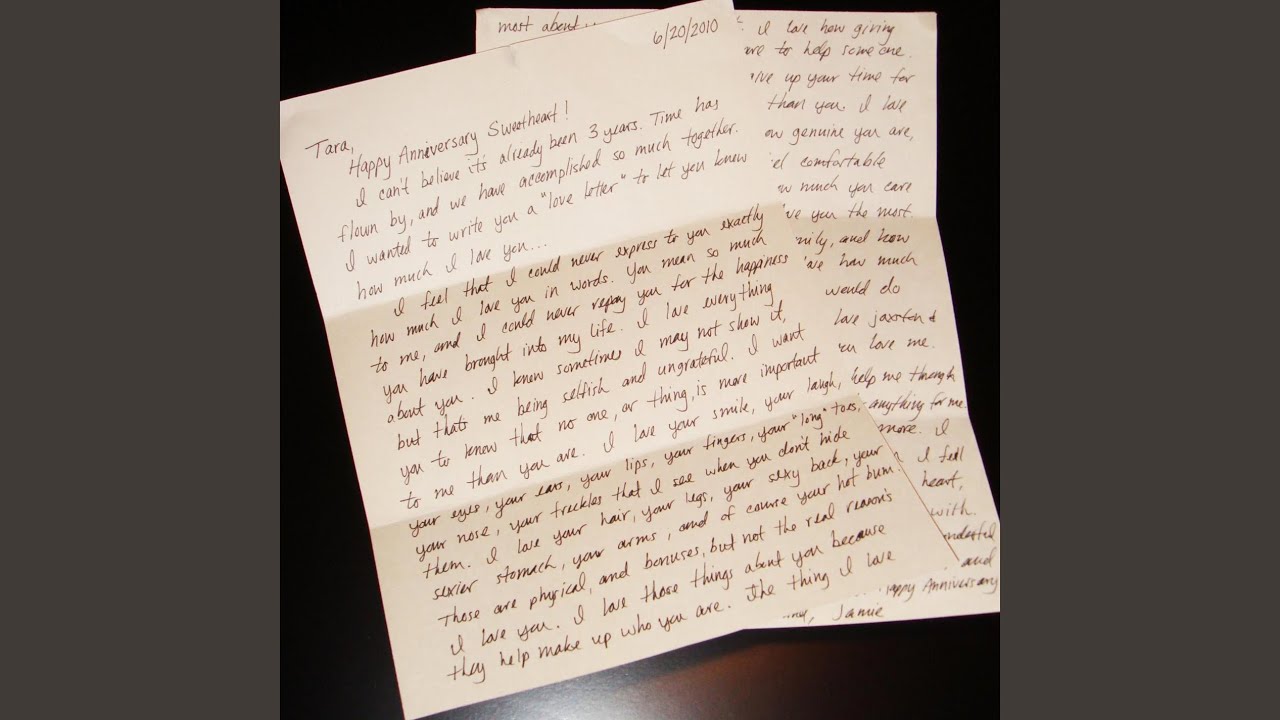 6/20/2010
Tara,
Happy Anniversary Sweetheart!
I can't believe it's already been 3 years. Time has
flown by, and we have accomplished so much together.
I wanted to write you a "love letter" to let you know
how much I love you...
I feel that I could never express to you exactly
how much I love you in words. You mean so much
to me, and I could never repay you for the happiness
you have brought into my life. I love everything
about you. I know sometimes I may not show it,
but thats me being selfish and ungrateful. I want
you to know that no one, or thing, is more important
to me than you are. I love your smile, your laugh,
your eyes, your ears, your lips, your fingers, your "long" toes,
your nose, your freckles that I see when you don't hide
them. I love your hair, your legs, your sexy back, your
sexier stomach, your arms, and of course your hot bum.
Those are physical, and bonuses, but not the real reason's
I love you. I love those things about you because
they help make up who you are. The thing I love
most about
I love how giving
are to help someone.
give up your time for
than you. I love
how genuine you are,
feel comfortable
how much you care
love you the most.
family, and how
love how much
would do
love Jaxston &
you love me.
help me through
anything for me.
more. I
I feel
heart,
with.
and
Happy Anniversary
Jamie